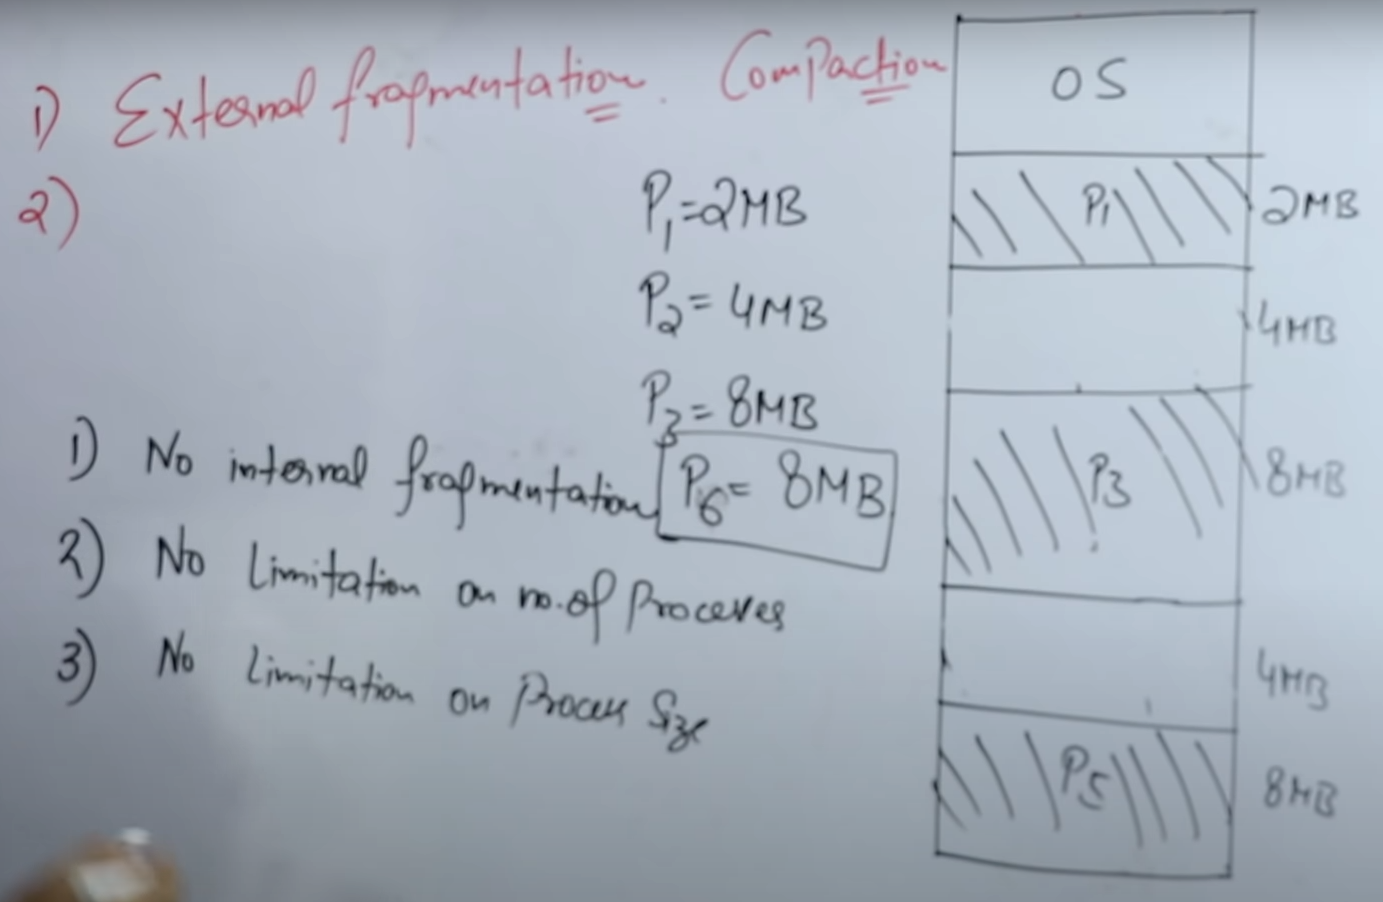 1) External fragmentation. Compaction
2)
P1=2MB
P2=4MB
P3=8MB
P6=8MB
1) No internal fragmentation
2) No Limitation on no.of Processes
3) No Limitation on Process Size
OS
P1 2MB
4MB
P3 8MB
4MB
P5 8MB